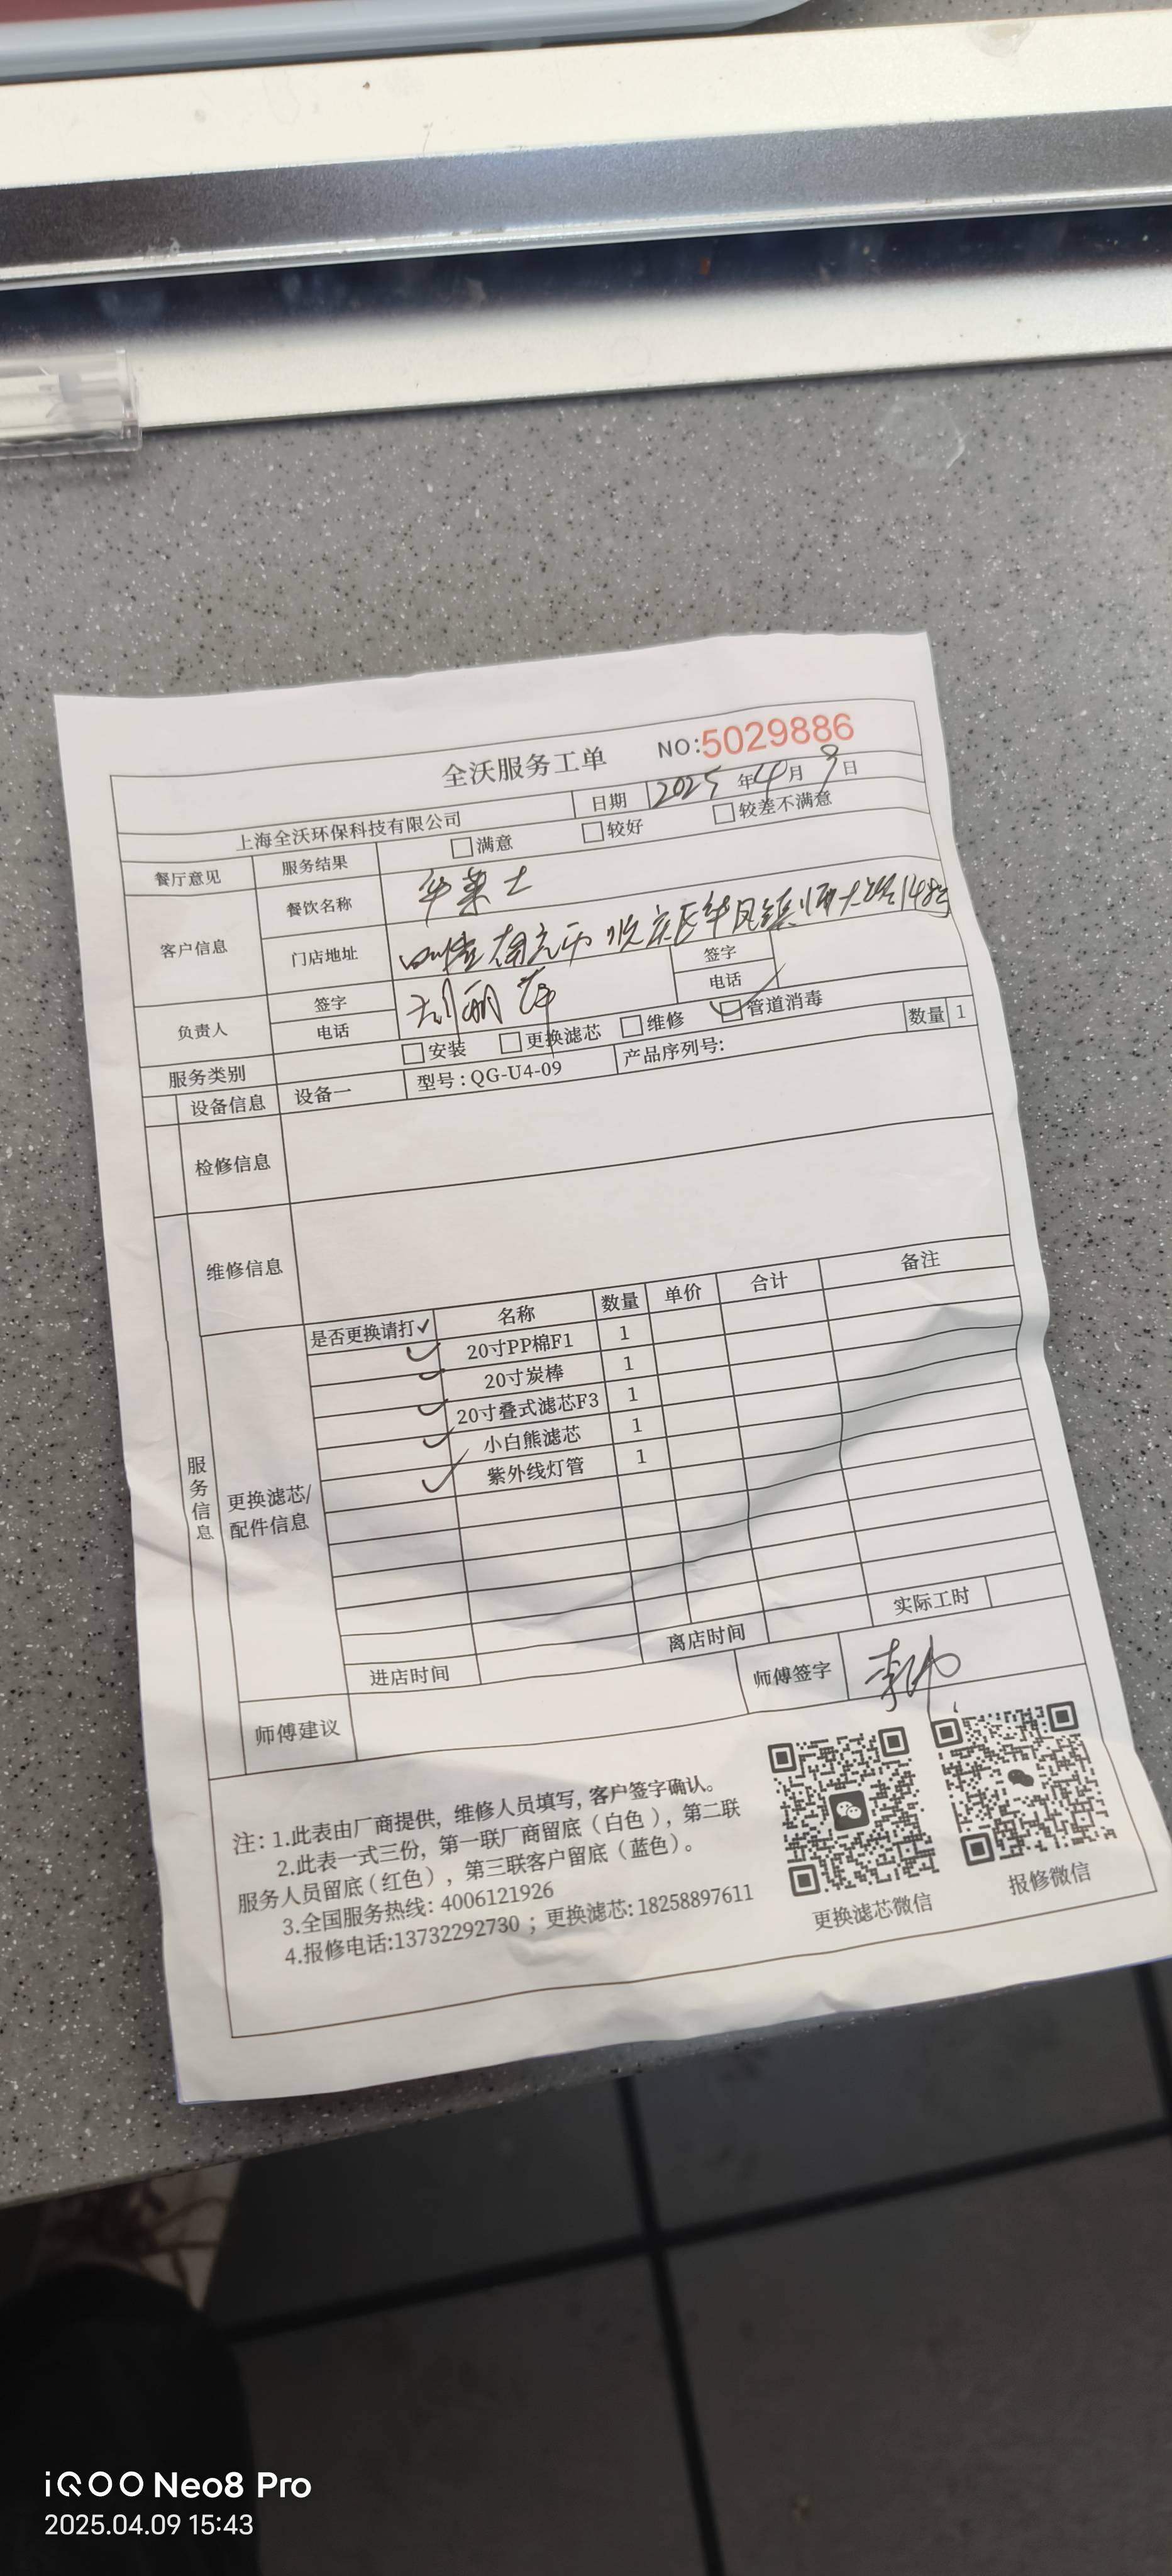 全沃服务工单 NO:5029886
上海全沃环保科技有限公司 日期 2025年4月9日
餐厅意见 服务结果 满意 较好 较差不满意
客户信息 餐饮名称 华莱士
门店地址 四川省南充市顺庆区华凤镇师大路148号
负责人 签字 签字
电话 电话
服务类别 安装 更换滤芯 维修 管道消毒
设备信息 设备一 型号:QG-U4-09 产品序列号: 数量 1
检修信息
维修信息
服务信息
更换滤芯/配件信息
是否更换请打✓ 名称 数量 单价 合计 备注
✓ 20寸PP棉F1 1
✓ 20寸炭棒 1
✓ 20寸叠式滤芯F3 1
✓ 小白熊滤芯 1
✓ 紫外线灯管 1
进店时间 离店时间 实际工时
师傅建议 师傅签字
注: 1.此表由厂商提供, 维修人员填写, 客户签字确认。
2.此表一式三份, 第一联厂商留底(白色), 第二联
服务人员留底(红色), 第三联客户留底(蓝色)。
3.全国服务热线: 4006121926
4.报修电话:13732292730 ; 更换滤芯: 18258897611
更换滤芯微信 报修微信
iQOO Neo8 Pro
2025.04.09 15:43